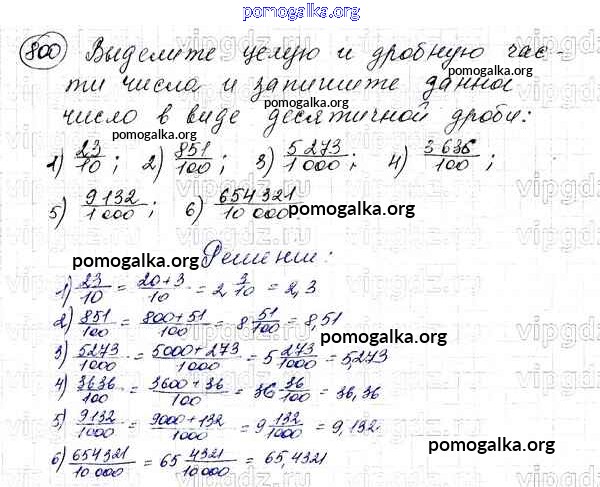 pomogalka.org
800 Выделите целую и дробную час-
ти числа и запишите данное
число в виде десятичной дроби:
pomogalka.org
1) 23/10; 2) 851/100; 3) 5273/1000; 4) 3636/100;
5) 9132/1000; 6) 654321/10000
pomogalka.org
pomogalka.org
Решение:
1) 23/10 = 20+3/10 = 2 3/10 = 2,3
2) 851/100 = 800+51/100 = 8 51/100 = 8,51
pomogalka.org
3) 5273/1000 = 5000+273/1000 = 5 273/1000 = 5,273
4) 3636/100 = 3600+36/100 = 36 36/100 = 36,36
5) 9132/1000 = 9000+132/1000 = 9 132/1000 = 9,132
pomogalka.org
6) 654321/10000 = 65 4321/10000 = 65,4321